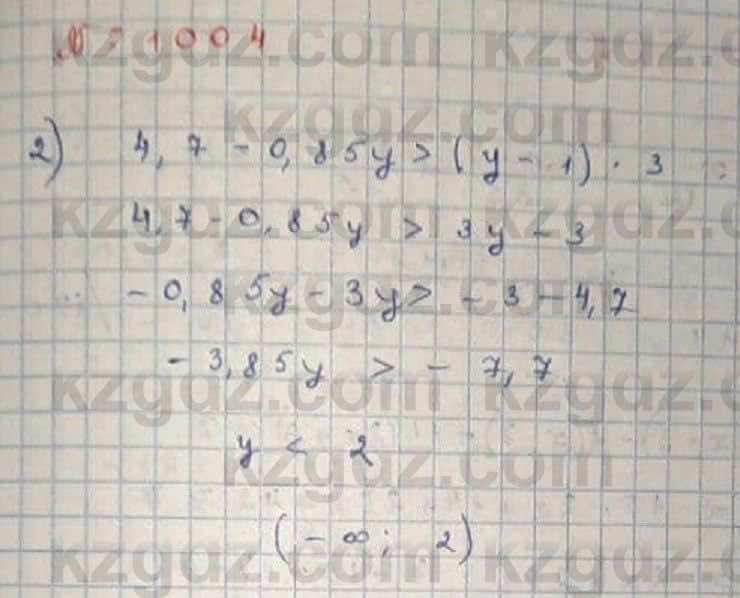 № 1004
2) 4,7 - 0,85y > (y - 1) · 3
4,7 - 0,85y > 3y - 3
-0,85y - 3y > -3 - 4,7
-3,85y > -7,7
y < 2
(-∞; 2)
kzgdz.com